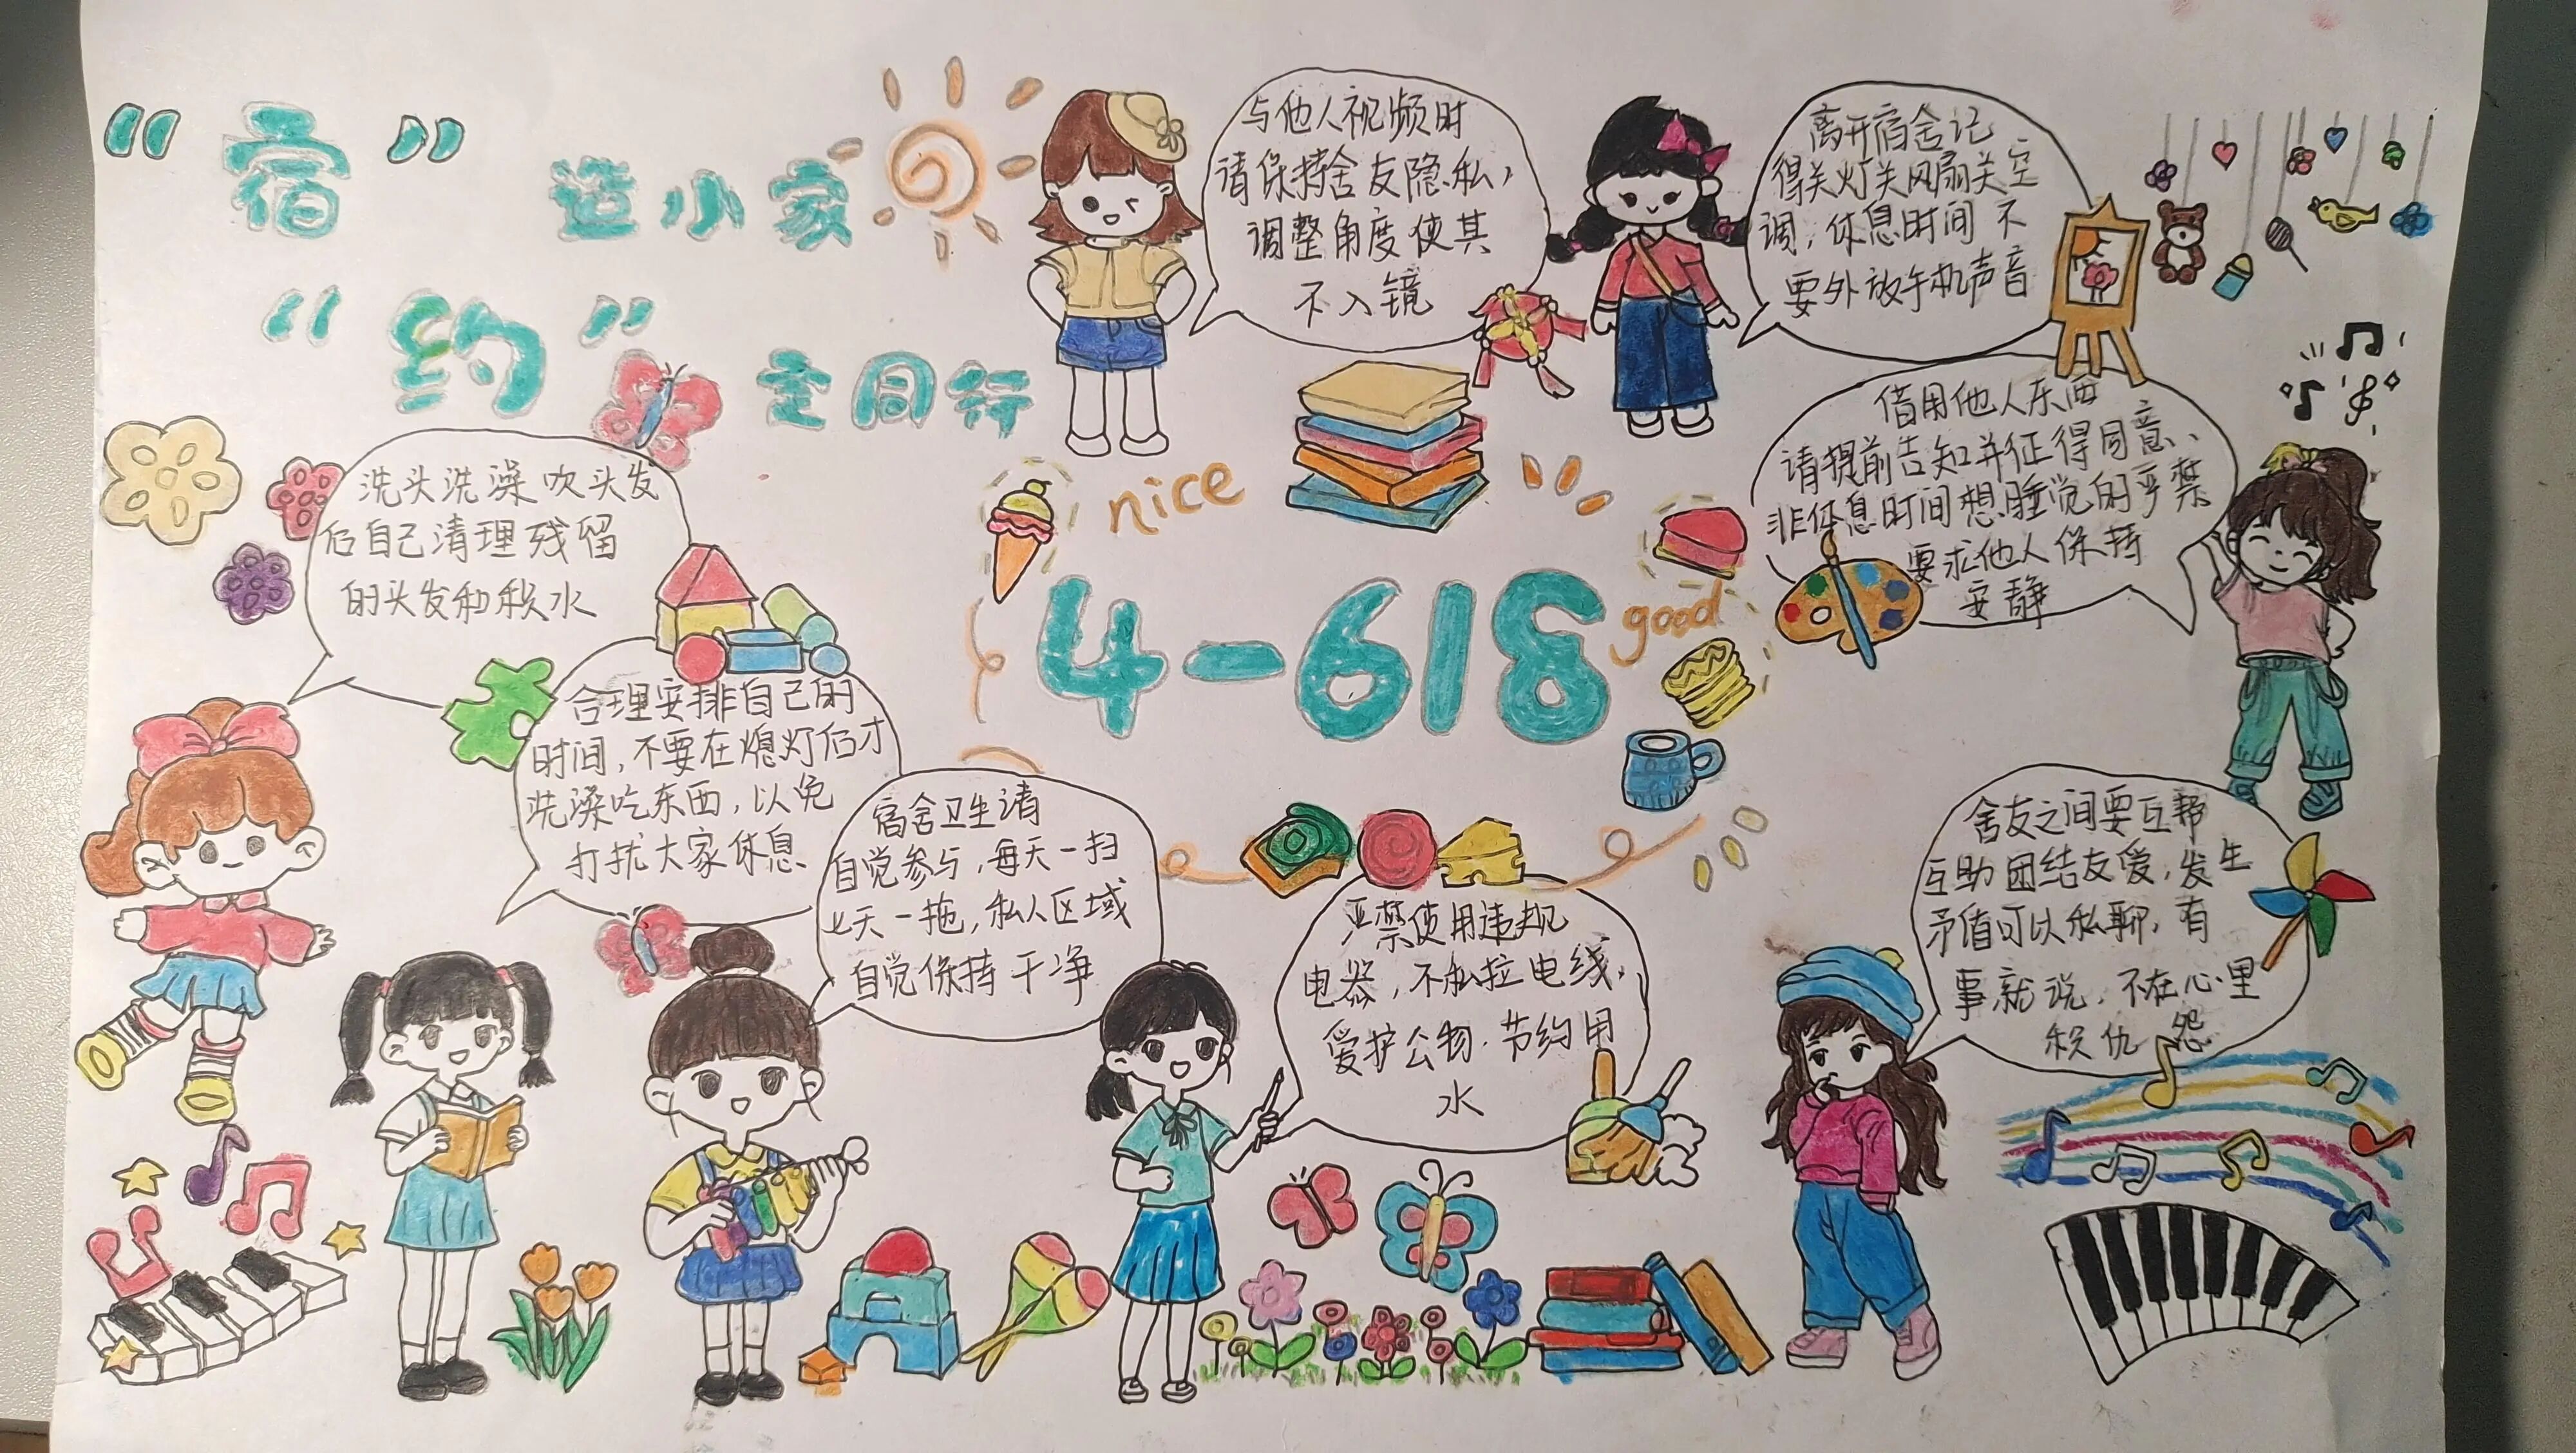 “宿”造小家
“约”定同行
与他人视频时
请保持舍友隐私,
调整角度使其
不入镜
离开宿舍记
得关灯关风扇关空
调,休息时间不
要外放手机声音
借用他人东西
请提前告知并征得同意、
非休息时间想睡觉的严禁
要求他人保持
安静
洗头洗澡吹头发
后自己清理残留
的头发和积水
nice
4-618
good
合理安排自己的
时间,不要在熄灯后才
洗澡吃东西,以免
打扰大家休息
宿舍卫生请
自觉参与,每天一扫
七天一拖,私人区域
自觉保持干净
严禁使用违规
电器,不私拉电线,
爱护公物.节约用
水
舍友之间要互帮
互助团结友爱,发生
矛盾可以私聊,有
事就说,不在心里
积仇怨